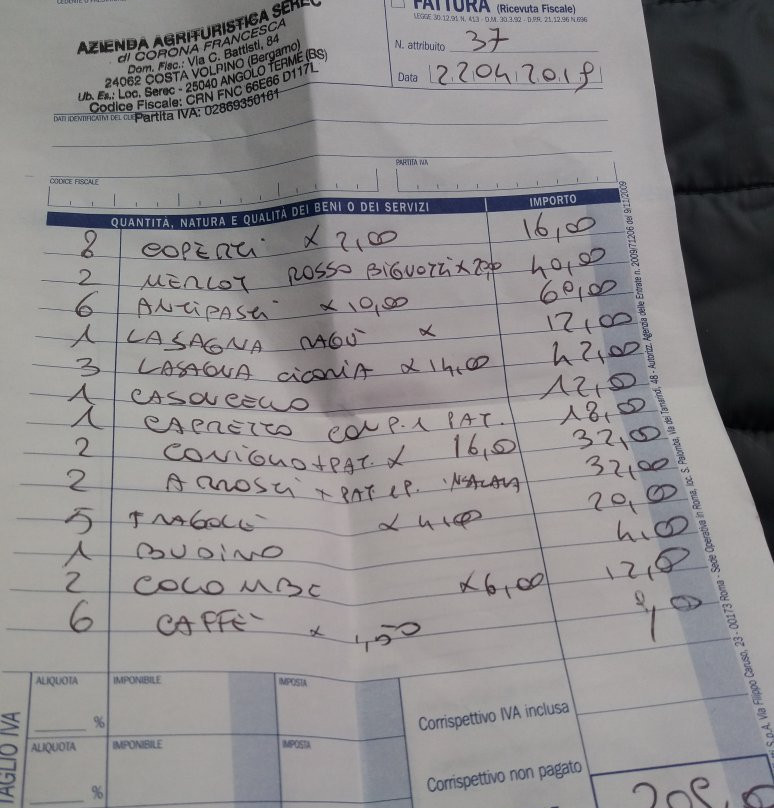 FATTURA (Ricevuta Fiscale)
LEGGE 30.12.91 N. 413 - D.M. 30.3.92 - D.P.R. 21.12.96 N.696
AZIENDA AGRITURISTICA SEREC
di CORONA FRANCESCA
Dom. Fisc.: Via C. Battisti, 84
24062 COSTA VOLPINO (Bergamo)
Ub. Es.: Loc. Serec - 25040 ANGOLO TERME (BS)
Codice Fiscale: CRN FNC 66E66 D117L
Partita IVA: 02869350161
N. attribuito 37
Data 22042019
DATI IDENTIFICATIVI DEL CLIE
CODICE FISCALE
PARTITA IVA
QUANTITÀ, NATURA E QUALITÀ DEI BENI O DEI SERVIZI IMPORTO
8 COPERTI x 2,00 16,00
2 MERLOT ROSSO 40,00
6 ANTIPASTI x 10,00 60,00
1 LASAGNA RAGÙ x 12,00
3 LASAGNA x 14,00 42,00
1 CASONCELLO 12,00
1 CAPRETTO CON P. 1 PAT. 18,00
2 CONIGLIO + PAT. x 16,00 32,00
2 ARROSTI + PAT e P. INSALATA 32,00
5 FRAGOLE x 4,00 20,00
1 BUDINO 4,00
2 COLOMBE x 6,00 12,00
6 CAFFÈ x 1,50 9,00
TAGLIO IVA
ALIQUOTA IMPONIBILE IMPOSTA
% Corrispettivo IVA inclusa
ALIQUOTA IMPONIBILE IMPOSTA
% Corrispettivo non pagato
S.p.A. Via Filippo Caruso, 23 - 00173 Roma - Sede Operativa in Roma, loc. S. Palomba, Via dei Tamarindi, 48 - Autorizz. Agenzia delle Entrate n. 2009/71206 del 9/11/2009